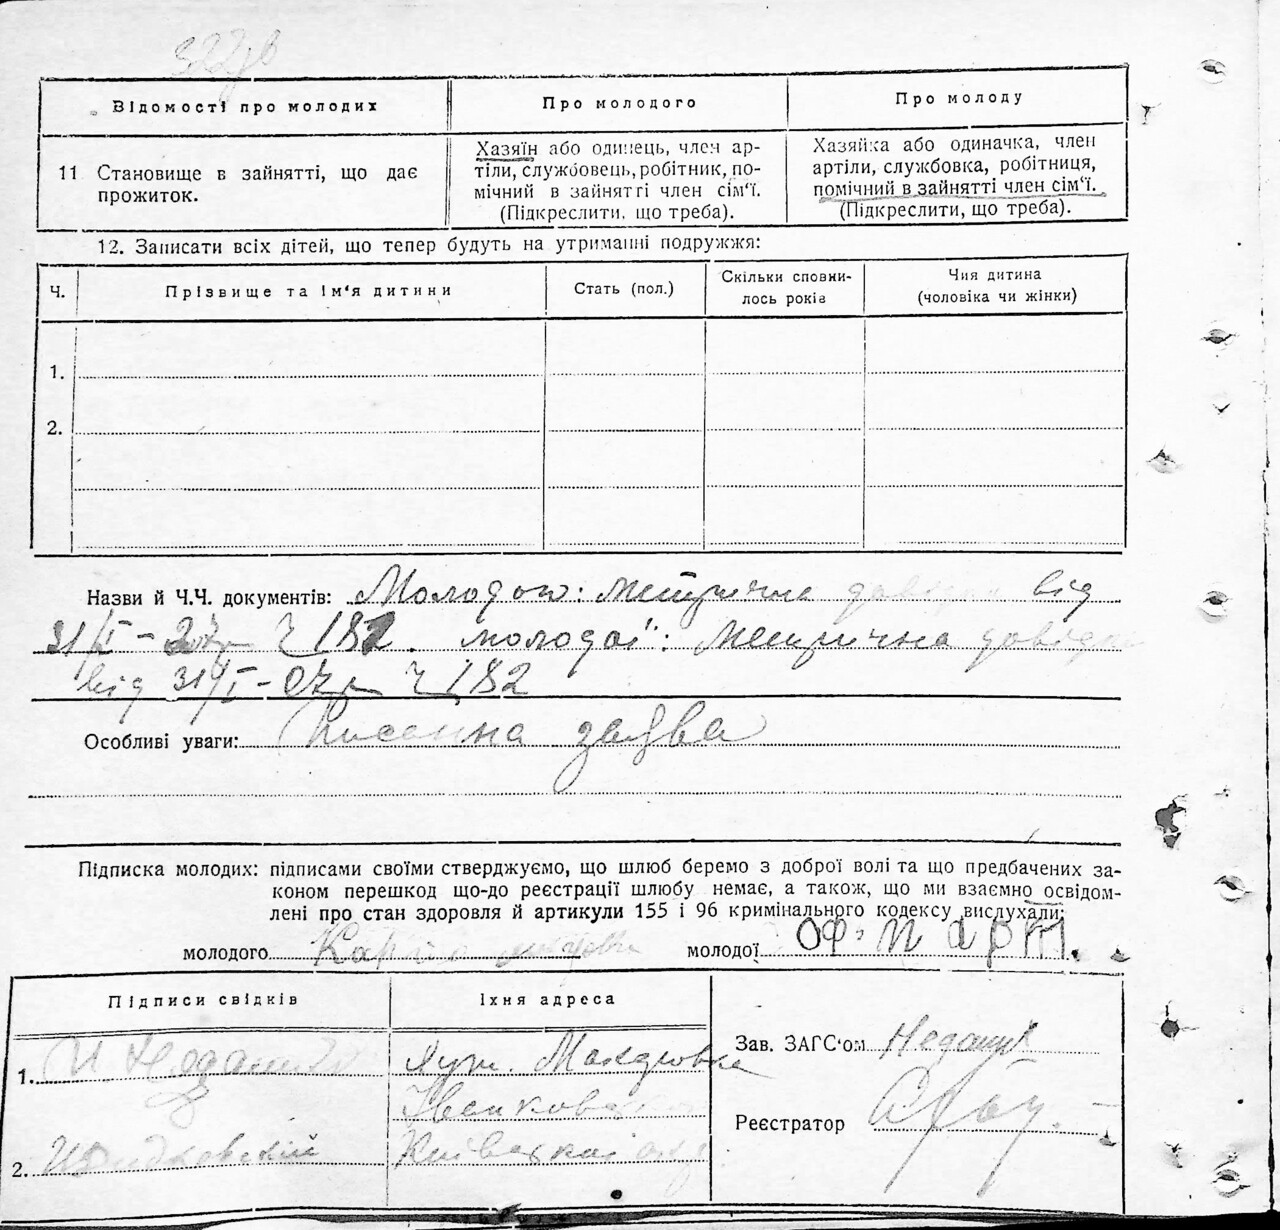 Відомості про молодих
Про молодого
Про молоду
11 Становище в зайнятті, що дає
прожиток.
Хазяїн або одинець, член ар-
тіли, службовець, робітник, по-
мічний в зайнятті член сім'ї.
(Підкреслити, що треба).
Хазяйка або одиначка, член
артіли, службовка, робітниця,
помічний в зайнятті член сім'ї.
(Підкреслити, що треба).
12. Записати всіх дітей, що тепер будуть на утриманні подружжя:
Ч.
Прізвище та ім'я дитини
Стать (пол.)
Скільки сповни-
лось років
Чия дитина
(чоловіка чи жінки)
1.
2.
Назви й Ч.Ч. документів: Молодого: метрична довідка від
31/I – Ч 182. молодої: Метрична довідка
від 31/I – 07 Ч 182
Особливі уваги: Писемна заява
Підписка молодих: підписами своїми стверджуємо, що шлюб беремо з доброї волі та що предбачених за-
коном перешкод що-до реєстрації шлюбу немає, а також, що ми взаємно освідом-
лені про стан здоровля й артикули 155 і 96 кримінального кодексу вислухали:
молодого
молодої
Підписи свідків
Їхня адреса
1.
2.
Київської
Зав. ЗАГС'ом
Реєстратор